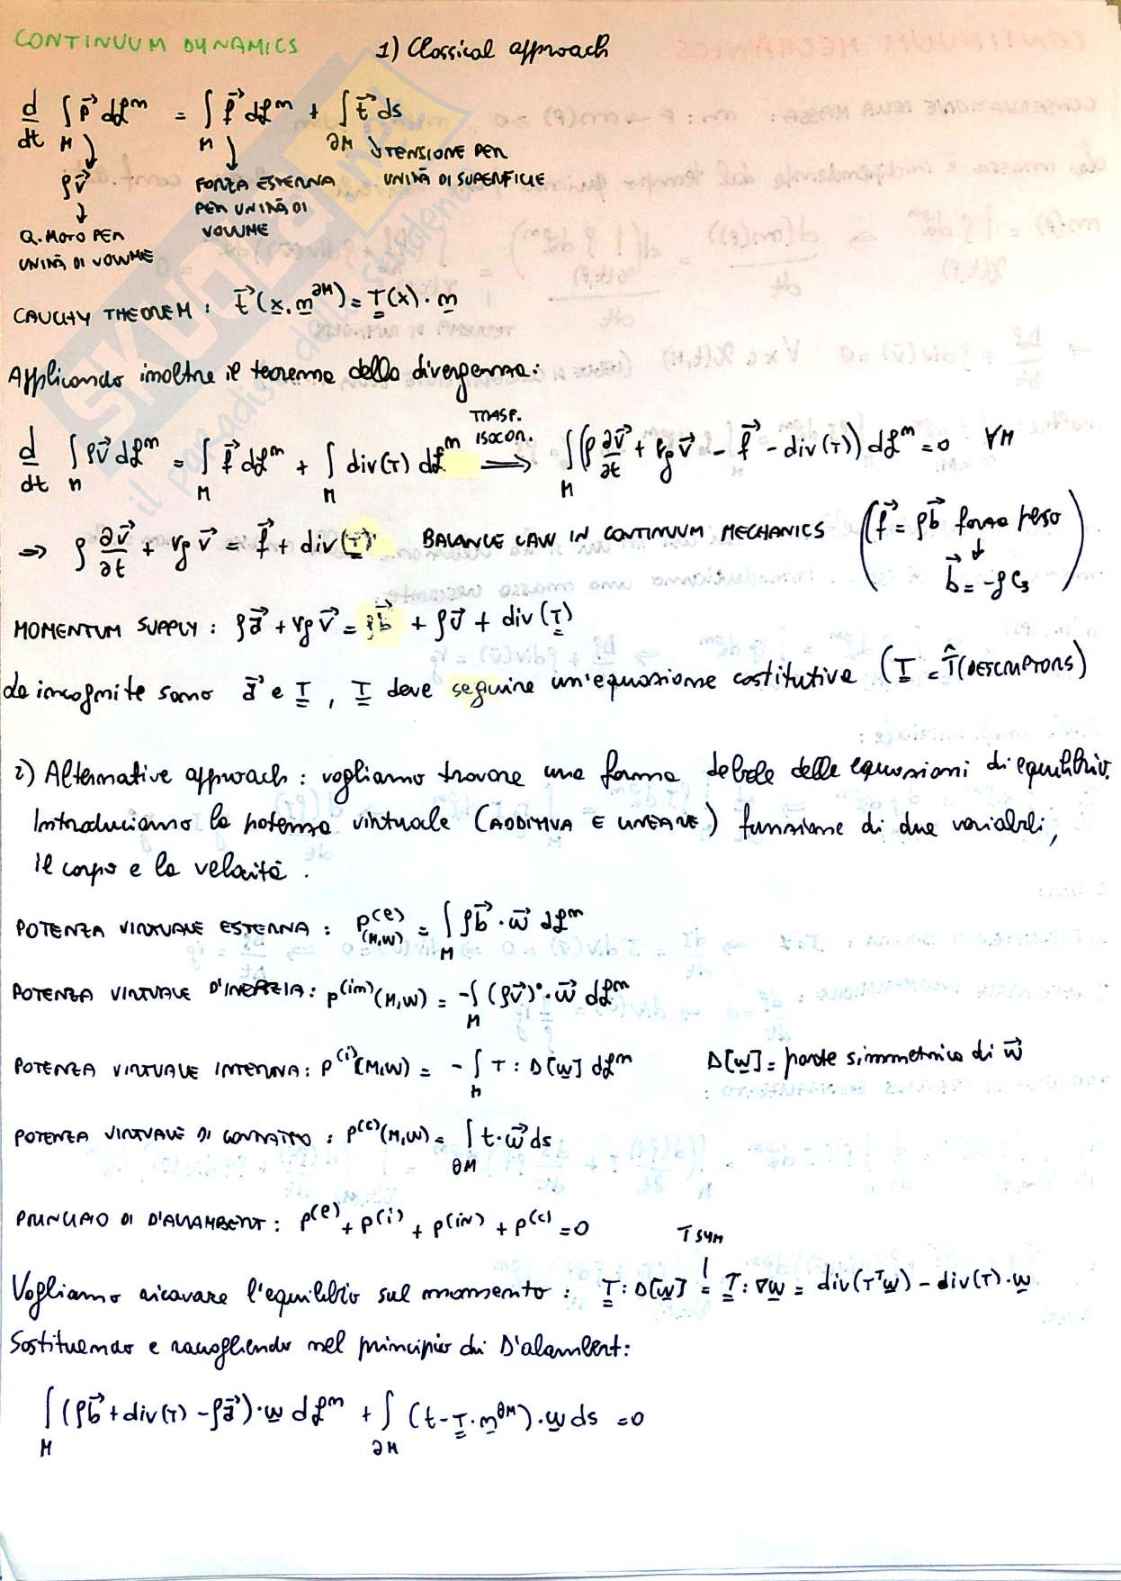 CONTINUUM DYNAMICS 1) Classical approach
d/dt ∫_M p⃗ dℒᵐ = ∫_M f⃗ dℒᵐ + ∫_∂M t⃗ ds
ρv⃗
Q. MOTO PER UNITÀ DI VOLUME
FORZA ESTERNA PER UNITÀ DI VOLUME
TENSIONE PER UNITÀ DI SUPERFICIE
CAUCHY THEOREM : t⃗(x, n^∂M) = T(x) · n
Applicando inoltre il teorema della divergenza:
d/dt ∫_M ρv⃗ dℒᵐ = ∫_M f⃗ dℒᵐ + ∫_M div(T) dℒᵐ ⟹ (TRASP. ISOCON.) ∫_M (ρ ∂v⃗/∂t + rρ v⃗ - f⃗ - div(T)) dℒᵐ = 0 ∀M
⇒ ρ ∂v⃗/∂t + rρ v⃗ = f⃗ + div(T) BALANCE LAW IN CONTINUUM MECHANICS (f⃗ = ρb⃗ forza peso
b⃗ = -g e₃)
MOMENTUM SUPPLY : ρa⃗ + rρ v⃗ = ρb⃗ + ρv⃗ + div(T)
Le incognite sono a⃗ e T , T deve seguire un'equazione costitutiva (T = T̂(DESCRIPTORS)
2) Alternative approach : vogliamo trovare una forma debole delle equazioni di equilibrio.
Introduciamo la potenza virtuale (ADDITIVA E LINEARE) funzione di due variabili,
il corpo e la velocità .
POTENZA VIRTUALE ESTERNA : P^(e)(M,W) = ∫_M ρb⃗ · w⃗ dℒᵐ
POTENZA VIRTUALE D'INERZIA : P^(in)(M,W) = -∫_M (ρv⃗)• · w⃗ dℒᵐ
POTENZA VIRTUALE INTERNA : P^(i)(M,W) = -∫_M T : D[w] dℒᵐ D[w] = parte simmetrica di w⃗
POTENZA VIRTUALE DI CONTATTO : P^(c)(M,W) = ∫_∂M t · w⃗ ds
PRINCIPIO DI D'ALAMBERT : P^(e) + P^(i) + P^(IN) + P^(c) = 0
T SYM
Vogliamo ricavare l'equilibrio sul momento : T : D[w] = T : ∇w = div(Tᵀw) - div(T) · w
Sostituendo e raccogliendo nel principio di D'alambert:
∫_M (ρb⃗ + div(T) - ρa⃗) · w dℒᵐ + ∫_∂M (t - T · n^∂M) · w ds = 0